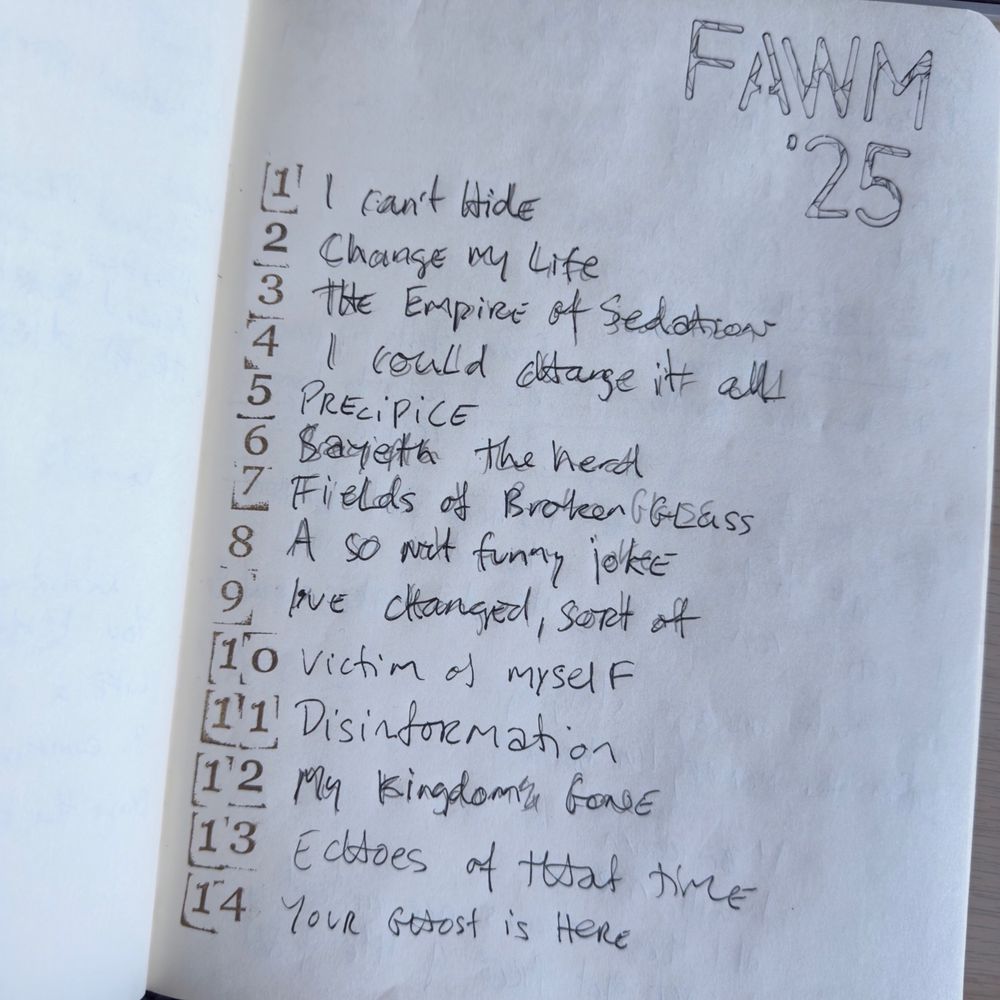 FAWM
'25
1 I can't Hide
2 Change my Life
3 THE Empire of Sedation
4 I could change it all
5 PRECIPICE
6 Sayeth the herd
7 Fields of Broken Glass
8 A so not funny joke
9 I've changed, sort of
10 Victim of myself
11 Disinformation
12 My Kingdom's Gone
13 Echoes of that time
14 Your Ghost is Here